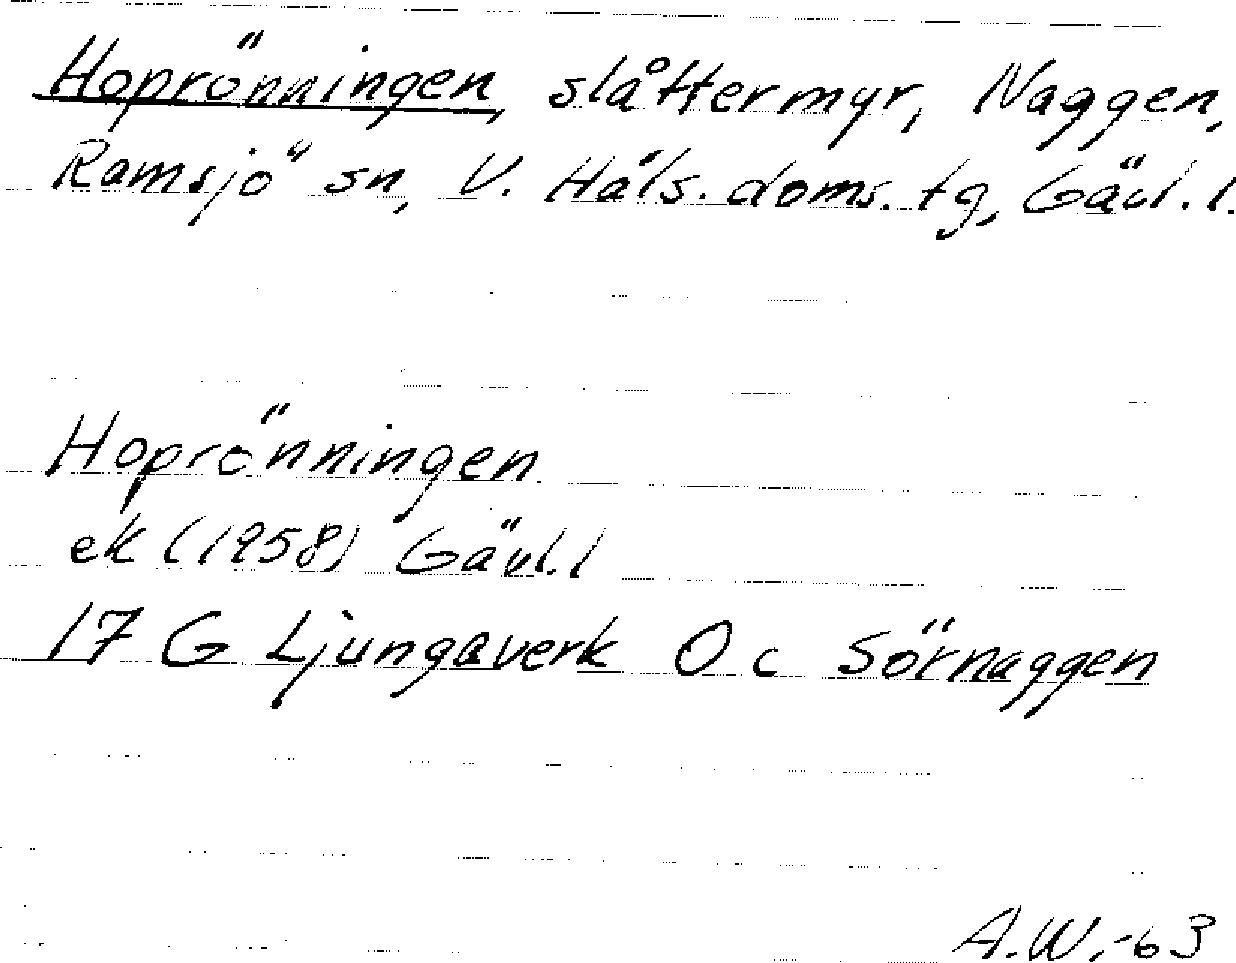 Hoprönningen, slåttermyr, Naggen,
Ramsjö sn, V. Häls. doms. tg, Gävl. l.
Hoprönningen
ek (1958) Gävl. l
17 G Ljungaverk O c Sörnaggen
A.W.-63